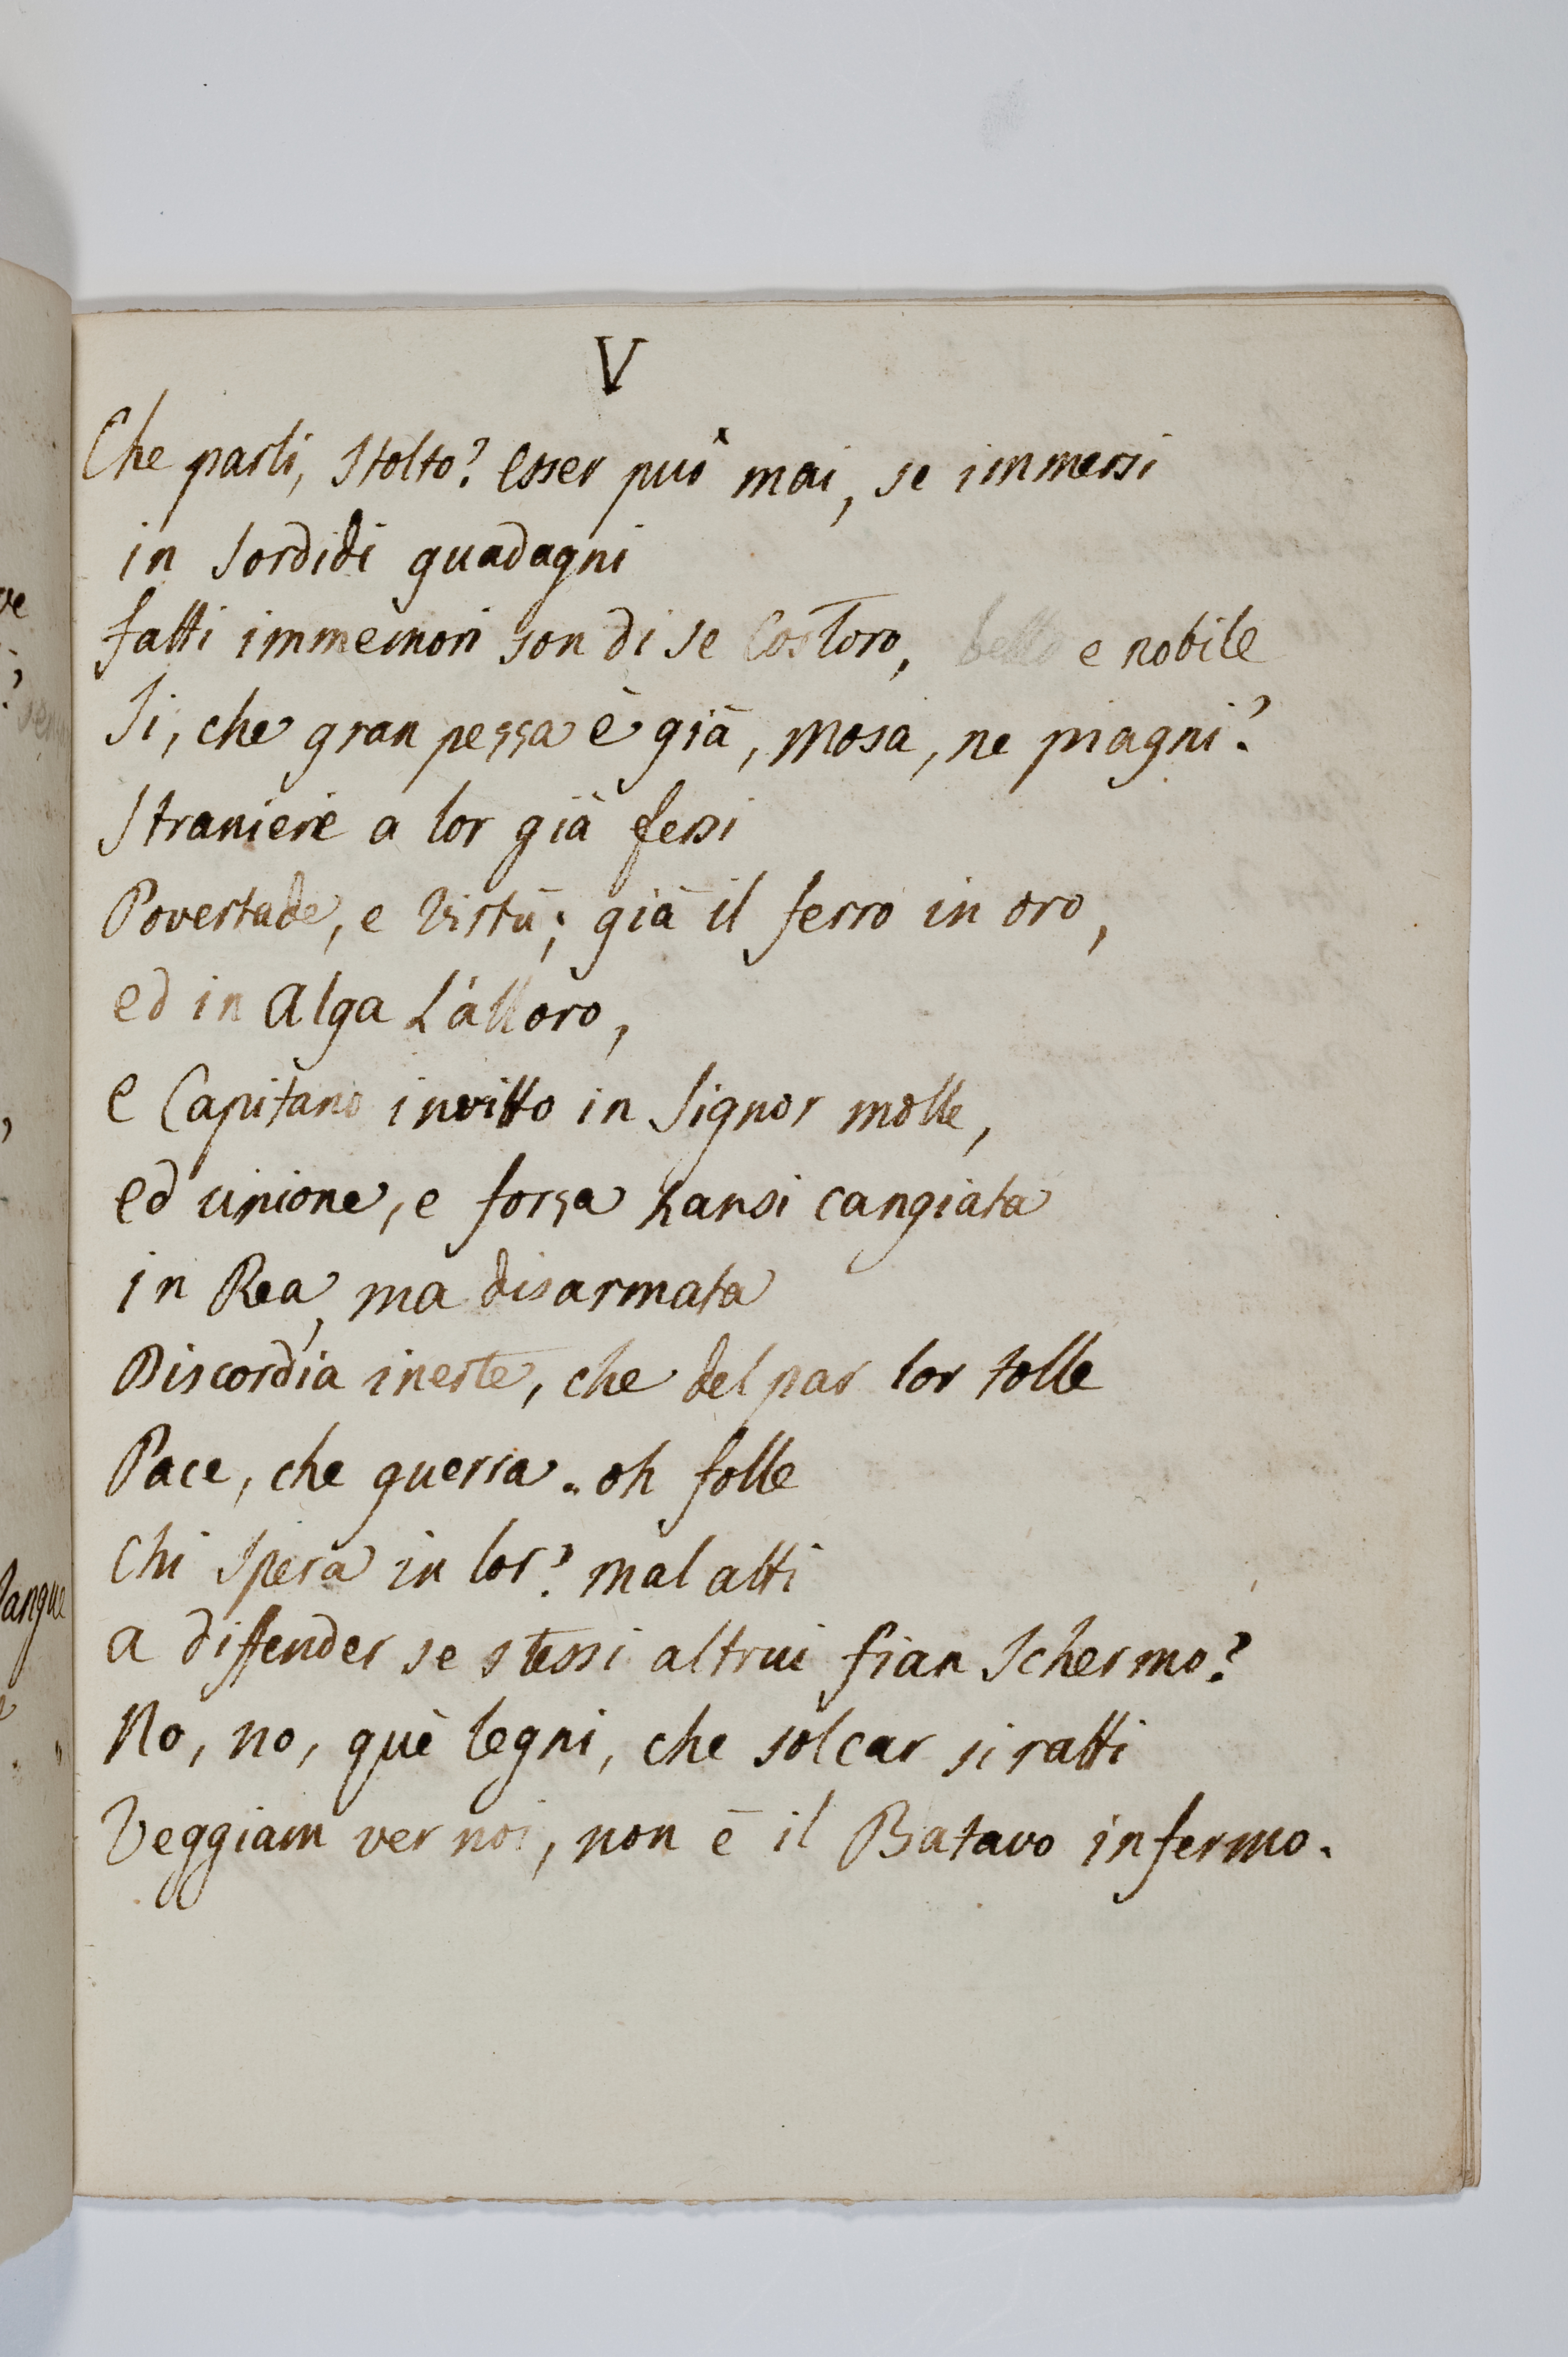 V
Che parli, Stolto? Esser può mai, se immersi
in Sordidi guadagni
fatti immemori son di se Costoro, bello e nobile
Si, che gran pezza è già, Mosa, ne piagni?
Straniere a lor già fersi
Povertade, e Virtù; già il ferro in oro,
ed in Alga L'alloro,
e Capitano invitto in Signor molle,
ed unione, e forza hansi cangiata
in Rea, ma disarmata
Discordia inerte, che del par lor tolle
Pace, che guerra. oh folle
Chi Spera in lor? mal atti
a diffender se stessi altrui fian Schermo?
No, no, què legni, che solcar si ratti
Veggiam ver noi, non è il Batavo infermo.
ve
Sangue